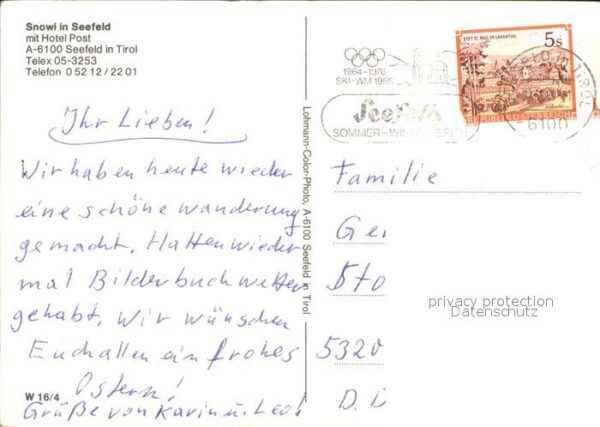 Snowi in Seefeld
mit Hotel Post
A-6100 Seefeld in Tirol
Telex 05-3253
Telefon 0 52 12 / 22 01
Ihr Lieben!
Wir haben heute wieder
eine schöne wanderung
gemacht. Hatten wieder
mal Bilderbuchwetter
gehabt. Wir wünschen
Euch allen ein frohes
Ostern!
Grüße von Karin u. Leo!
W 16/4
Lohmann-Color-Photo, A-6100 Seefeld in Tirol
1964-1976
SKI-WM 1985
Seefeld
SOMMER - WINTER
STIFT ST. PAUL IM LAVANTTAL
5s
REPUBLIK ÖSTERREICH
SEEFELD IN TIROL
6100
Familie
Ger
Sto
5320
D.
privacy protection
Datenschutz